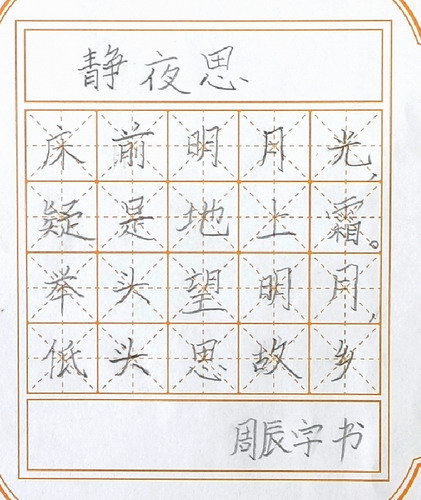 静夜思
床前明月光,
疑是地上霜。
举头望明月,
低头思故乡
周辰宇书